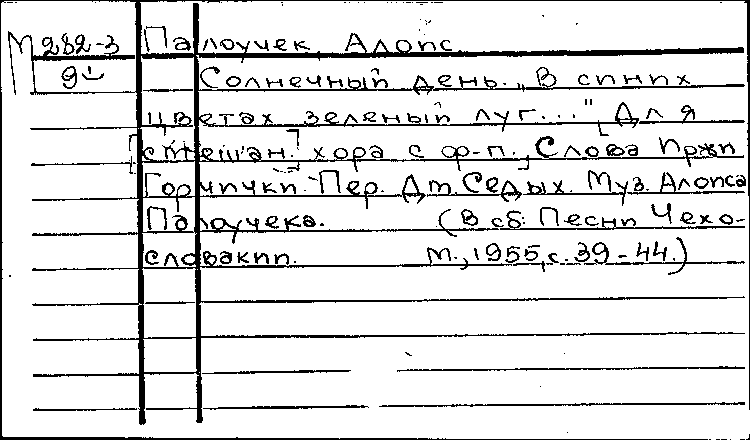 М 282-3 Палоучек, Алоис
9 Солнечный день. „В синих
цветах зеленый луг..." Для
[смешан.] хора с ф-п., Слова Иржи
Горчички. Пер. Дм. Седых. Муз. Алоиса
Палоучека. (В сб: Песни Чехо-
словакии. М., 1955, с. 39-44.)